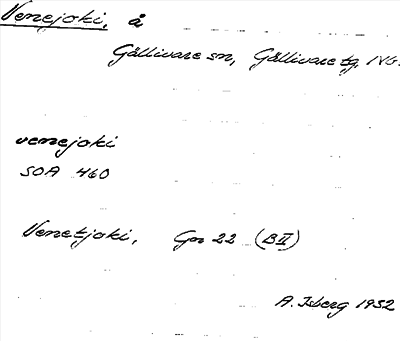 Venejoki, å
Gällivare sn, Gällivare tg.
venejoki
SOA 460
Venetjoki, Gn 22 (BII)
A. Isberg 1932